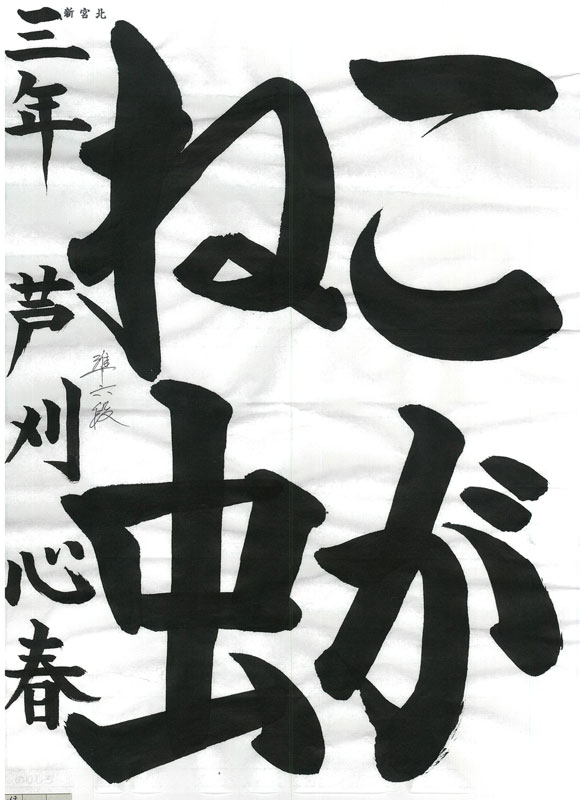 こが
ね虫
三年 芦刈心春
準六段
北宮新